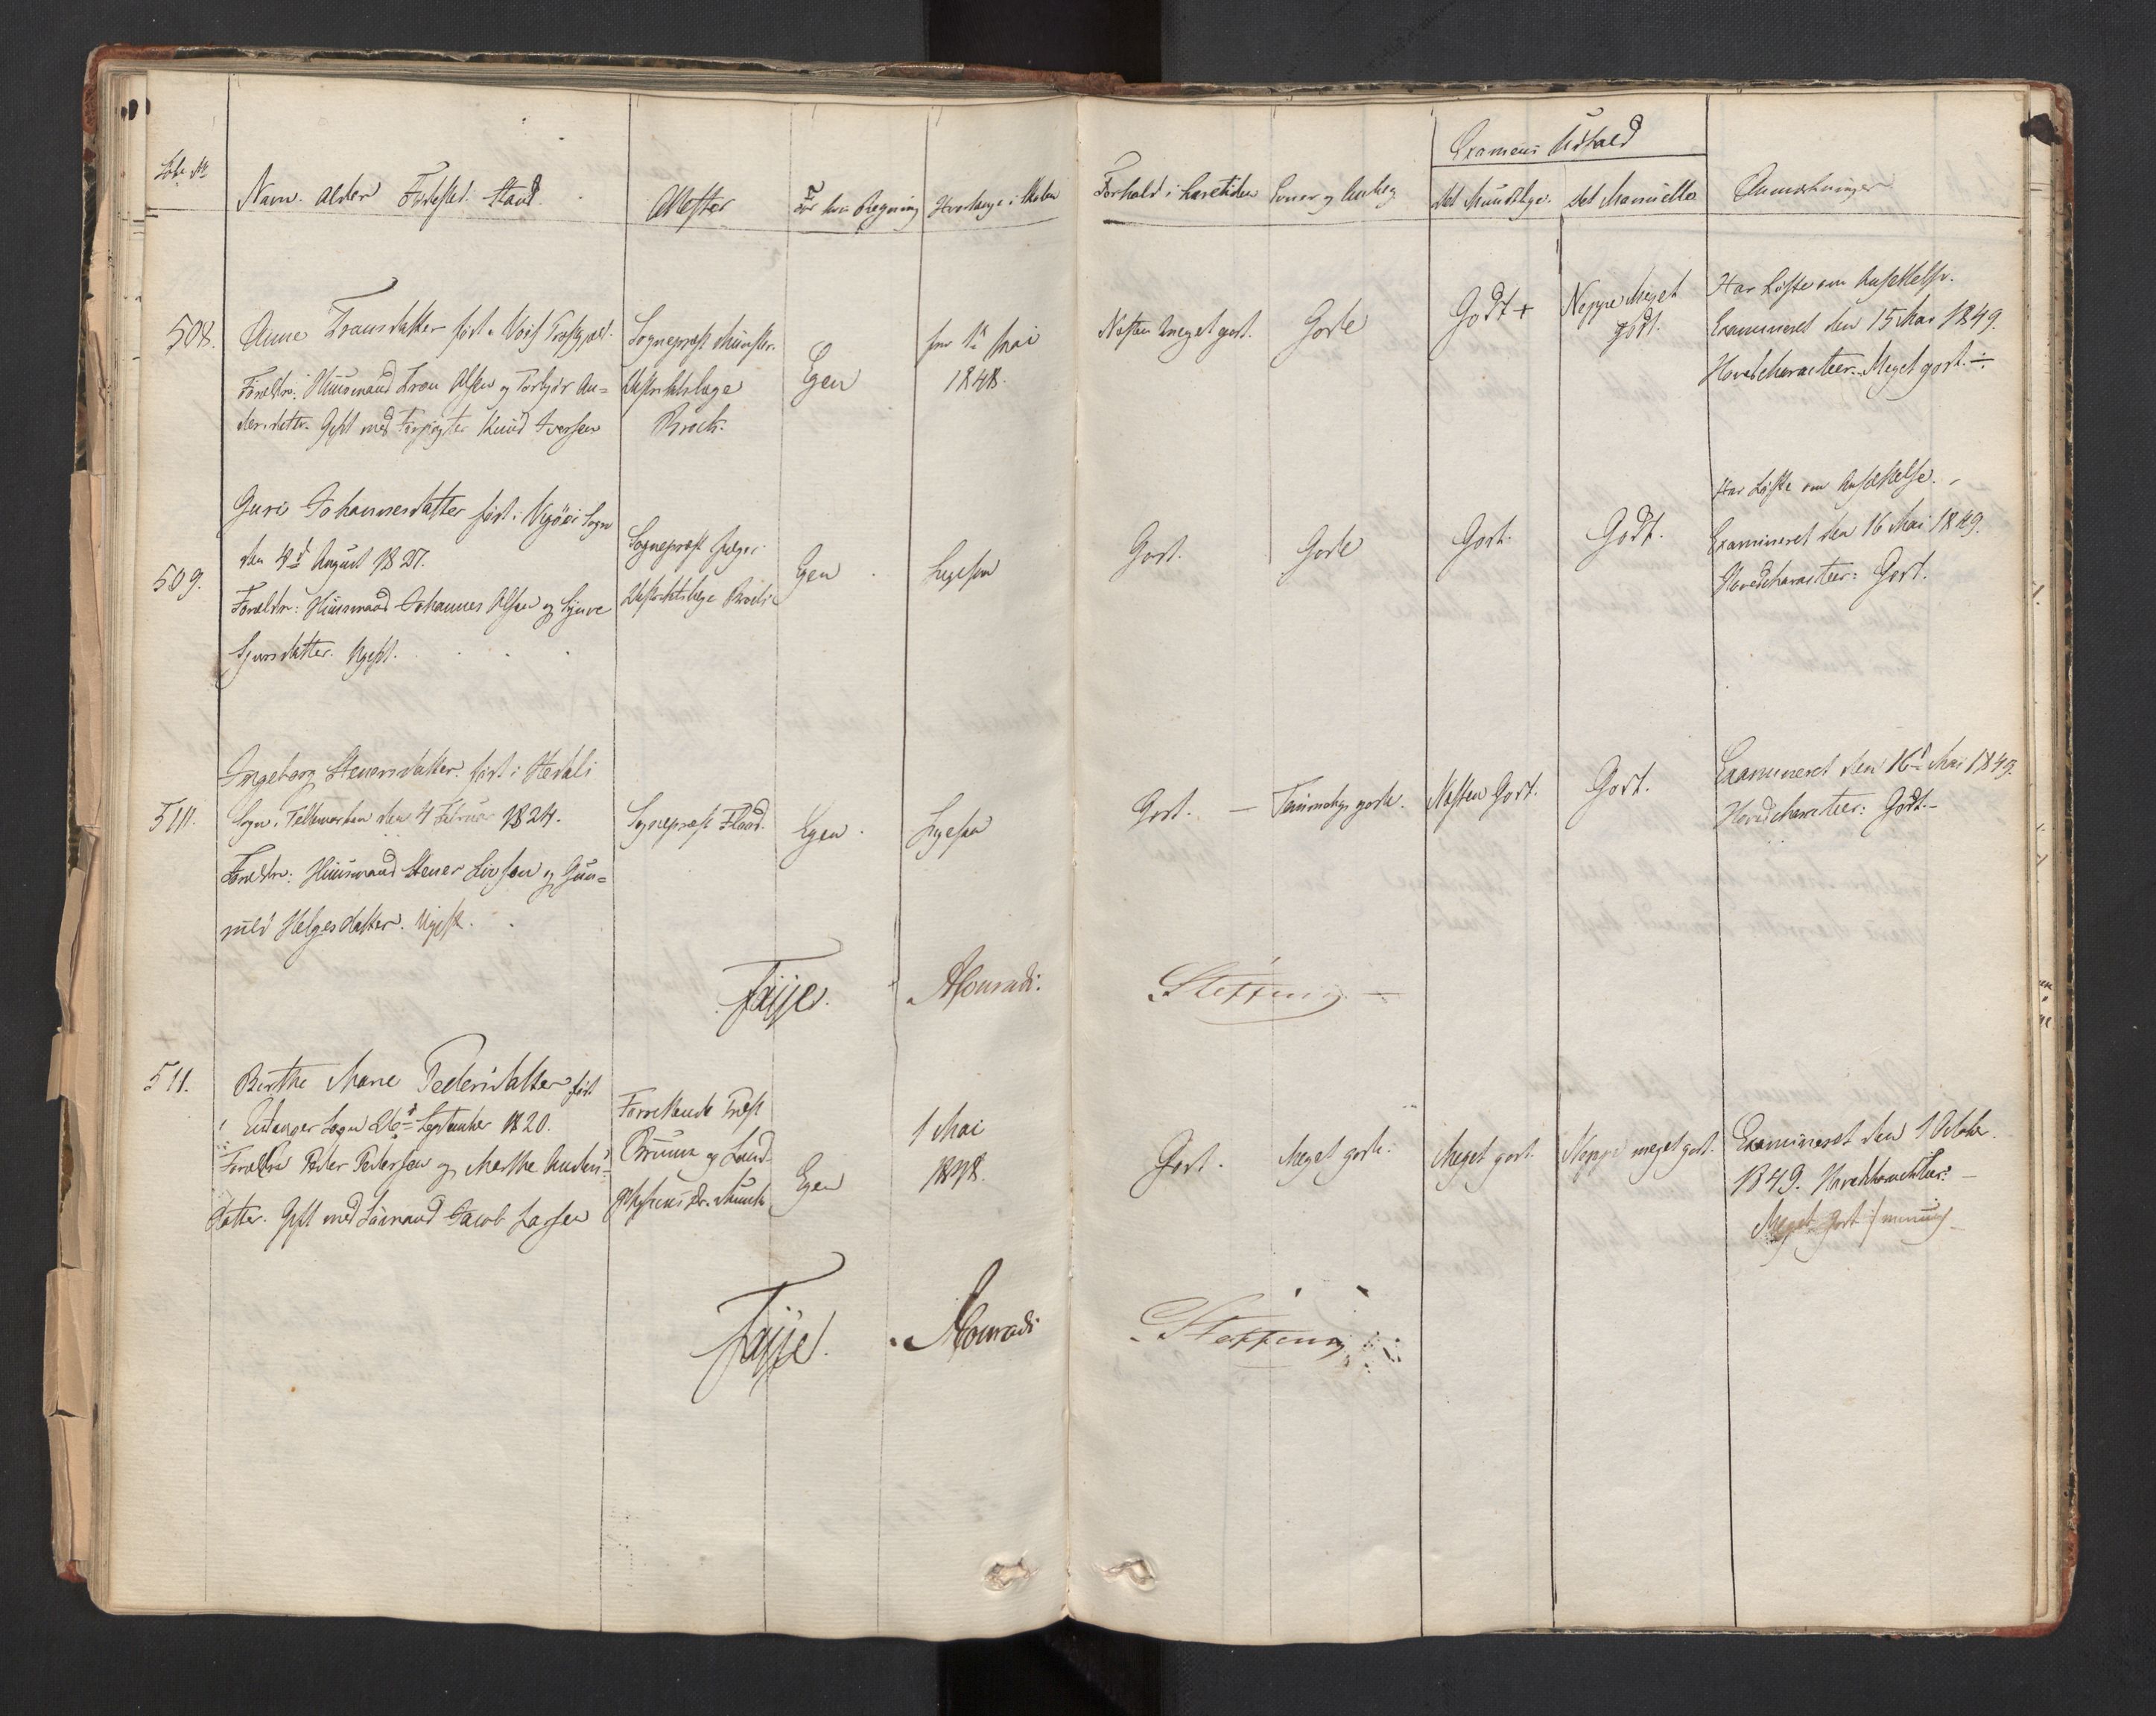 Løbe №
Navn. Alder Fødested. Stand.
Attester
For hvis Regning
Hvorlænge i Skolen
Forhold i Læretiden
Evner og Anlæg
Examens Udfald
Det Mundtlige.
Det Manuelle
Anmærkninger
508.
Anne Tronsdatter født i Præstgjæld.
Forældre: Huusmand Tron Olsen og Torbjør An=
dersdatter. Gift med Knud Iversen
Sognepræst Münster.
Districtslæge
Brock.
Egen
fra 1te Mai
1848.
Næsten meget godt.
Gode
Godt +
Neppe Meget
godt.
Har Løfte om Ansættelse.
Examineret den 15 Mai 1849.
Hovedcharacteer. Meget godt. ÷
509.
Guri Johannesdatter født i Sogn
den 4d August 1827.
Forældre: Huusmand Johannes Olsen og Synve
Sjursdatter. Ugift.
Sognepræst
Districtslæge Brock
Egen
Ligesaa
Godt.
Gode
Godt.
Godt.
Har Løfte om Ansættelse.
Examineret den 16 Mai 1849.
Hovedcharacteer: Godt.
510.
Ingeborg Stenersdatter. født i Hedals
Sogn i Tellemarken den 4 Februar 1824.
Forældre: Huusmand Stener Livsen og Gun=
nild Helgesdatter. Ugift.
Sognepræst Flood.
Egen.
Ligesaa
Godt. —
Temmelig gode.
Næsten Godt.
Godt.
Examineret den 16d Mai 1849.
Hovedcharacteer: Godt. —
Faÿe.
Conradi.
Steffens —
511.
Berthe Marie Pedersdatter født
i Eidanger Sogn 26d September 1820.
Forældre Peder Pedersen og Marthe Anders-
datter. Gift med Jacob Larsen
Præst
Bruun og Land
Dr. Munk
Egen
1 Mai
1848.
Godt.
Meget gode.
Meget godt.
Neppe meget godt.
Examineret den 1 Octobr.
1849. Hovedcharacteer: —
Meget Godt ./. (minus) —
Faÿe.
Conradi
Steffens